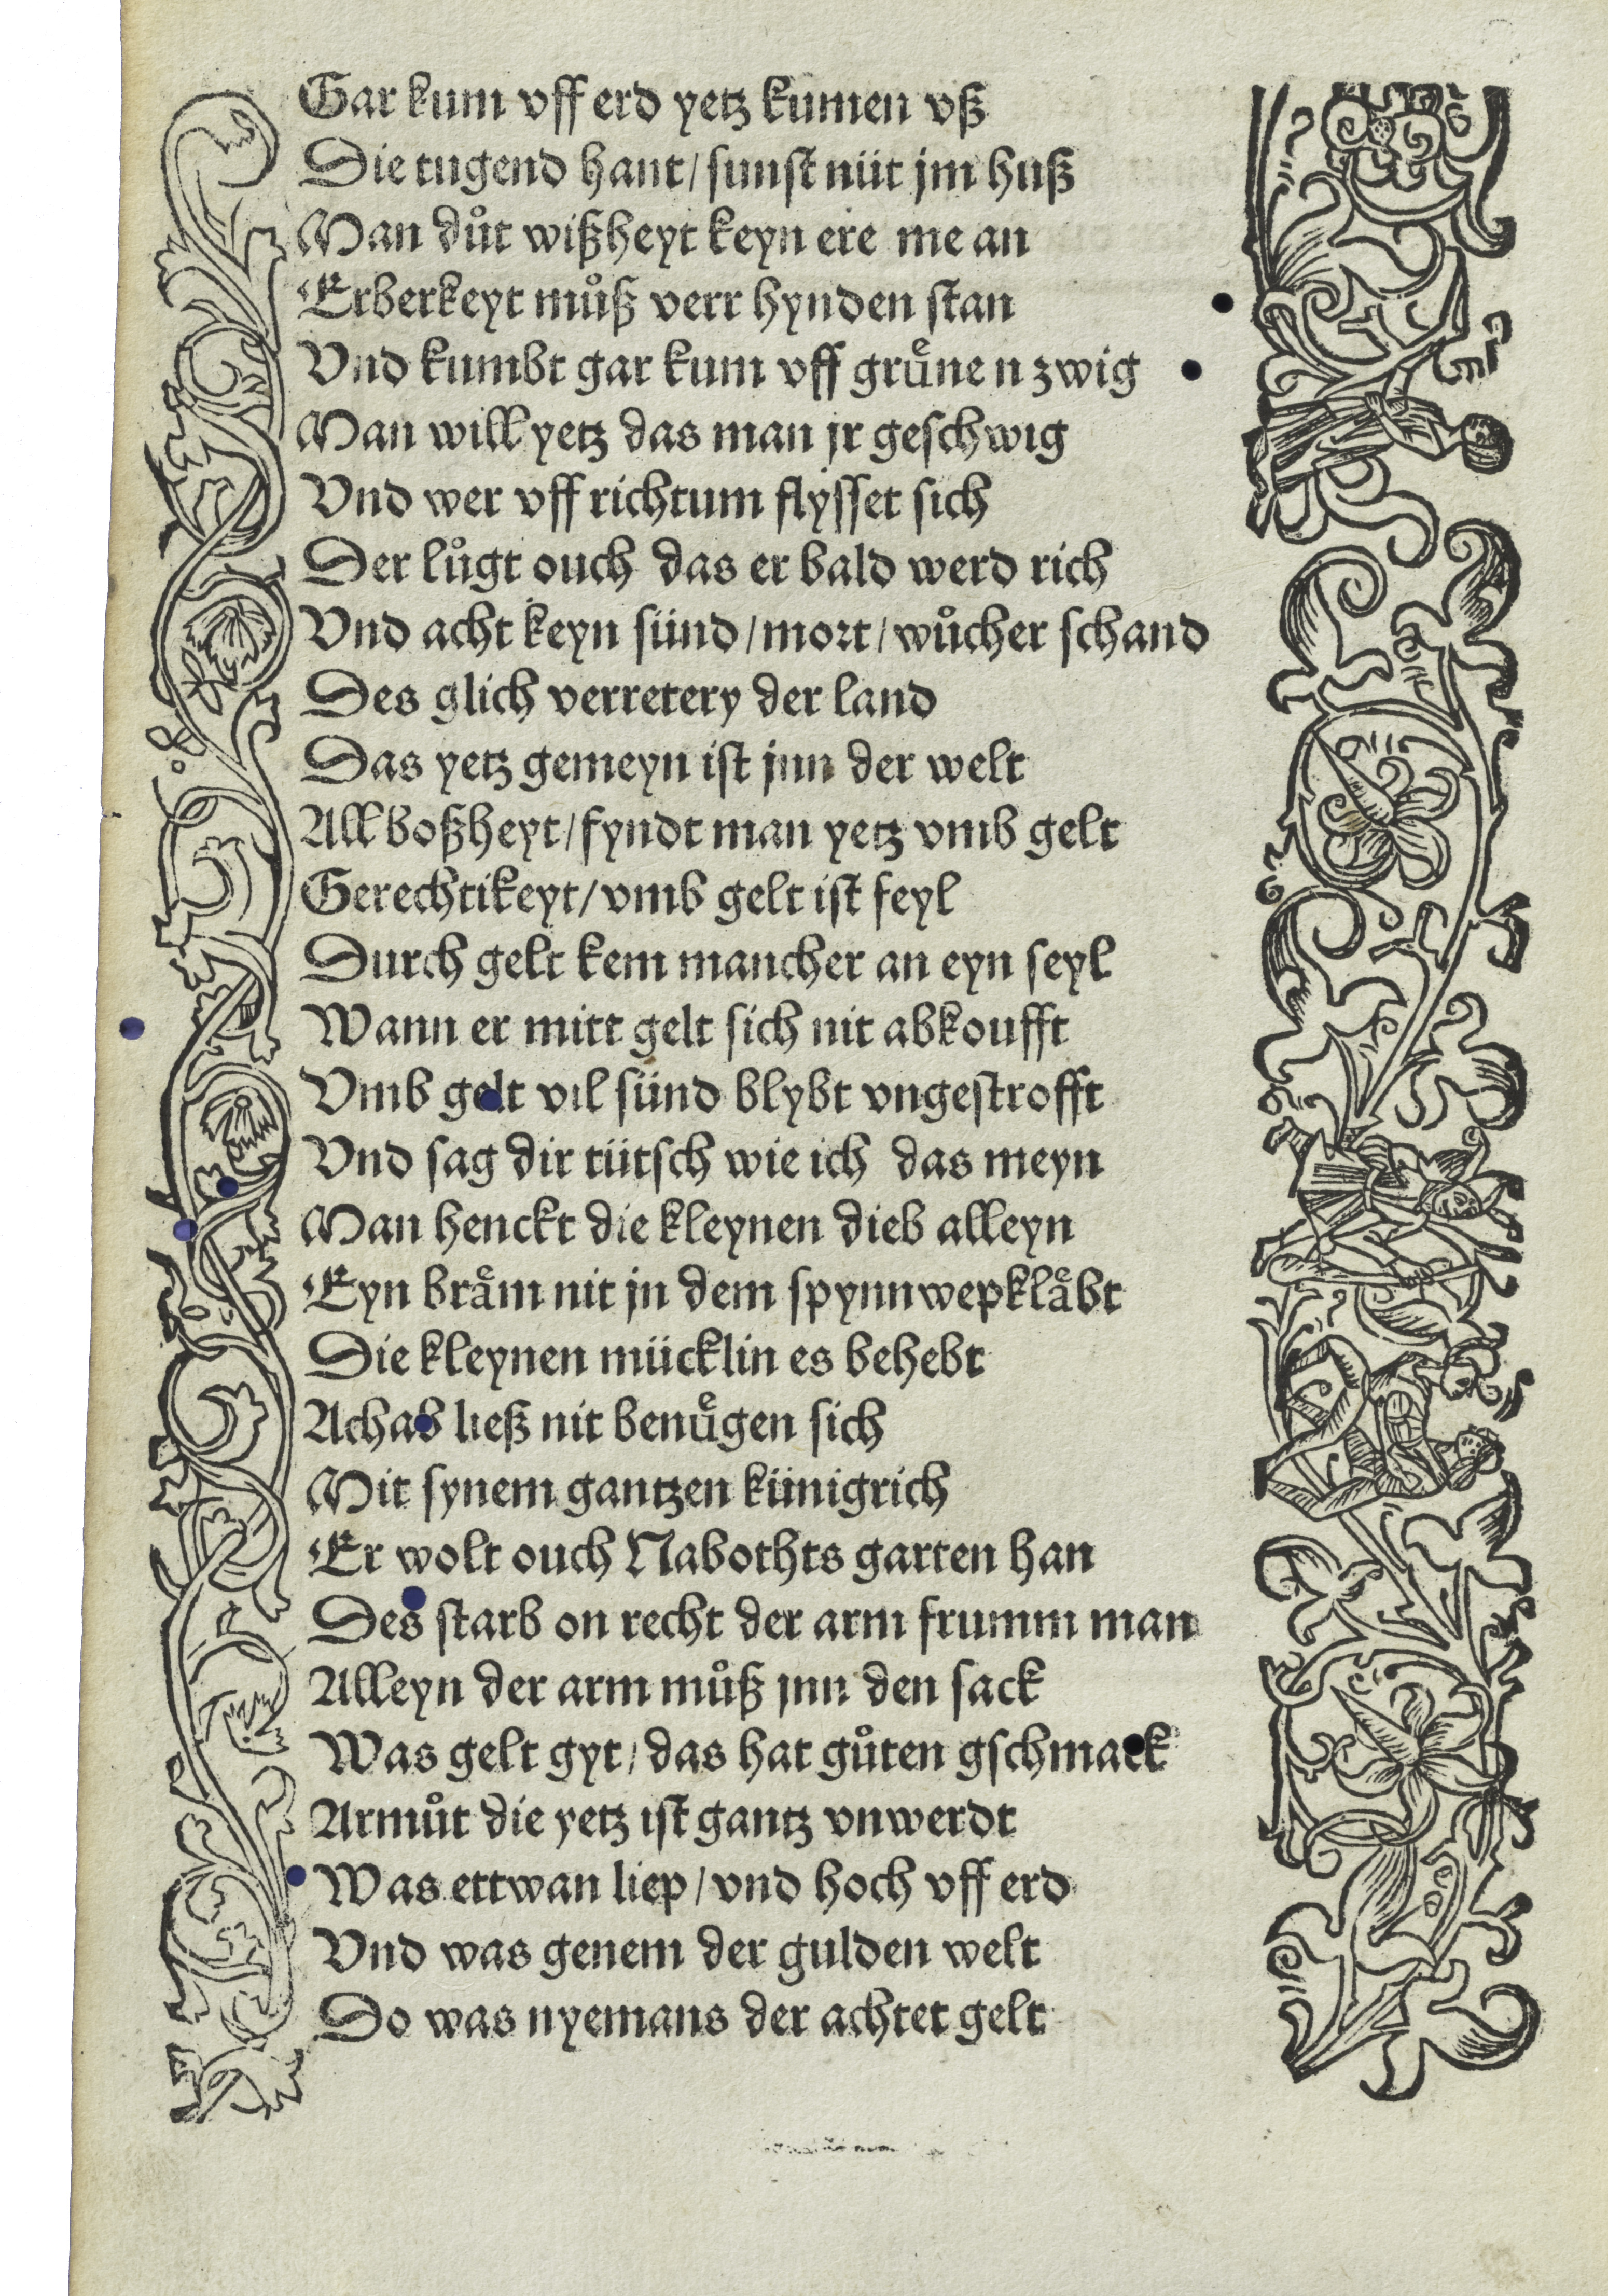 Gar kum vff erd yetz kumen vß
Die tugend hant/sunst nüt jm huß
Man důt wißheyt keyn ere me an
Erberkeyt můß verr hynden stan
Vnd kumbt gar kum vff gruͤnen zwig
Man will yetz das man jr geschwig
Vnd wer vff richtum flysset sich
Der lůgt ouch das er bald werd rich
Vnd acht keyn sünd/mort/wůcher schand
Des glich verretery der land
Das yetz gemeyn ist jnn der welt
All boßheyt/fyndt man yetz vmb gelt
Gerechtikeyt/vmb gelt ist feyl
Durch gelt kem mancher an eyn seyl
Wann er mitt gelt sich nit abkoufft
Vmb gelt vil sünd blybt vngestrofft
Vnd sag dir tütsch wie ich das meyn
Man henckt die kleynen dieb alleyn
Eyn braͤm nit jn dem spynnwep klaͤbt
Die kleynen mücklin es behebt
Achab ließ nit benuͤgen sich
Mit synem gantzen künigrich
Er wolt ouch Nabothts garten han
Des starb on recht der arm frumm man
Alleyn der arm můß jnn den sack
Was gelt gyt/das hat gůten gschmack
Armůt die yetz ist gantz vnwerdt
Was ettwan liep/vnd hoch vff erd
Vnd was genem der gulden welt
Do was nyemans der achtet gelt